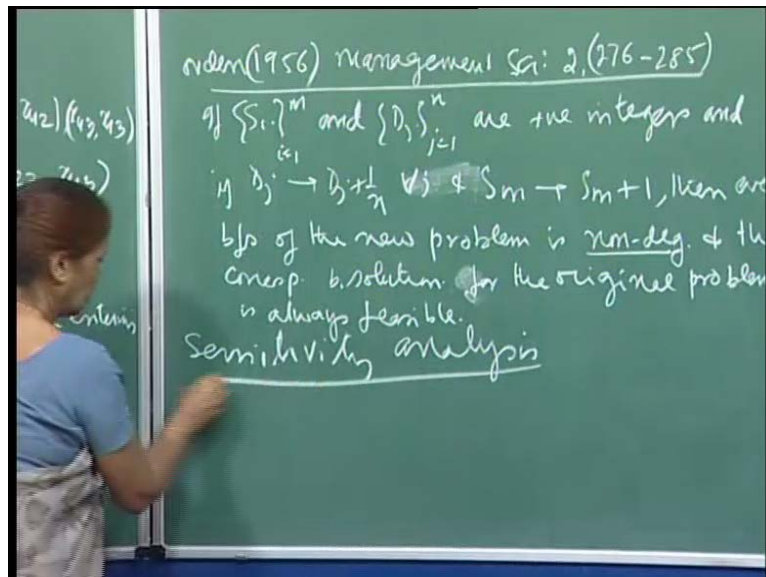 x₄₂) (x₄₃, x₁₃)
entering
orden (1956) Management Sci: 2, (276-285)
If {Sᵢ}ᵢ₌₁ᵐ and {Dⱼ}ⱼ₌₁ⁿ are +ve integers and
if Dⱼ → Dⱼ + 1/n ∀j & Sₘ → Sₘ+1, then eve
bfs of the new problem is non-deg. & the
corresp. b. solution for the original problem
is always feasible.
Sensitivity analysis